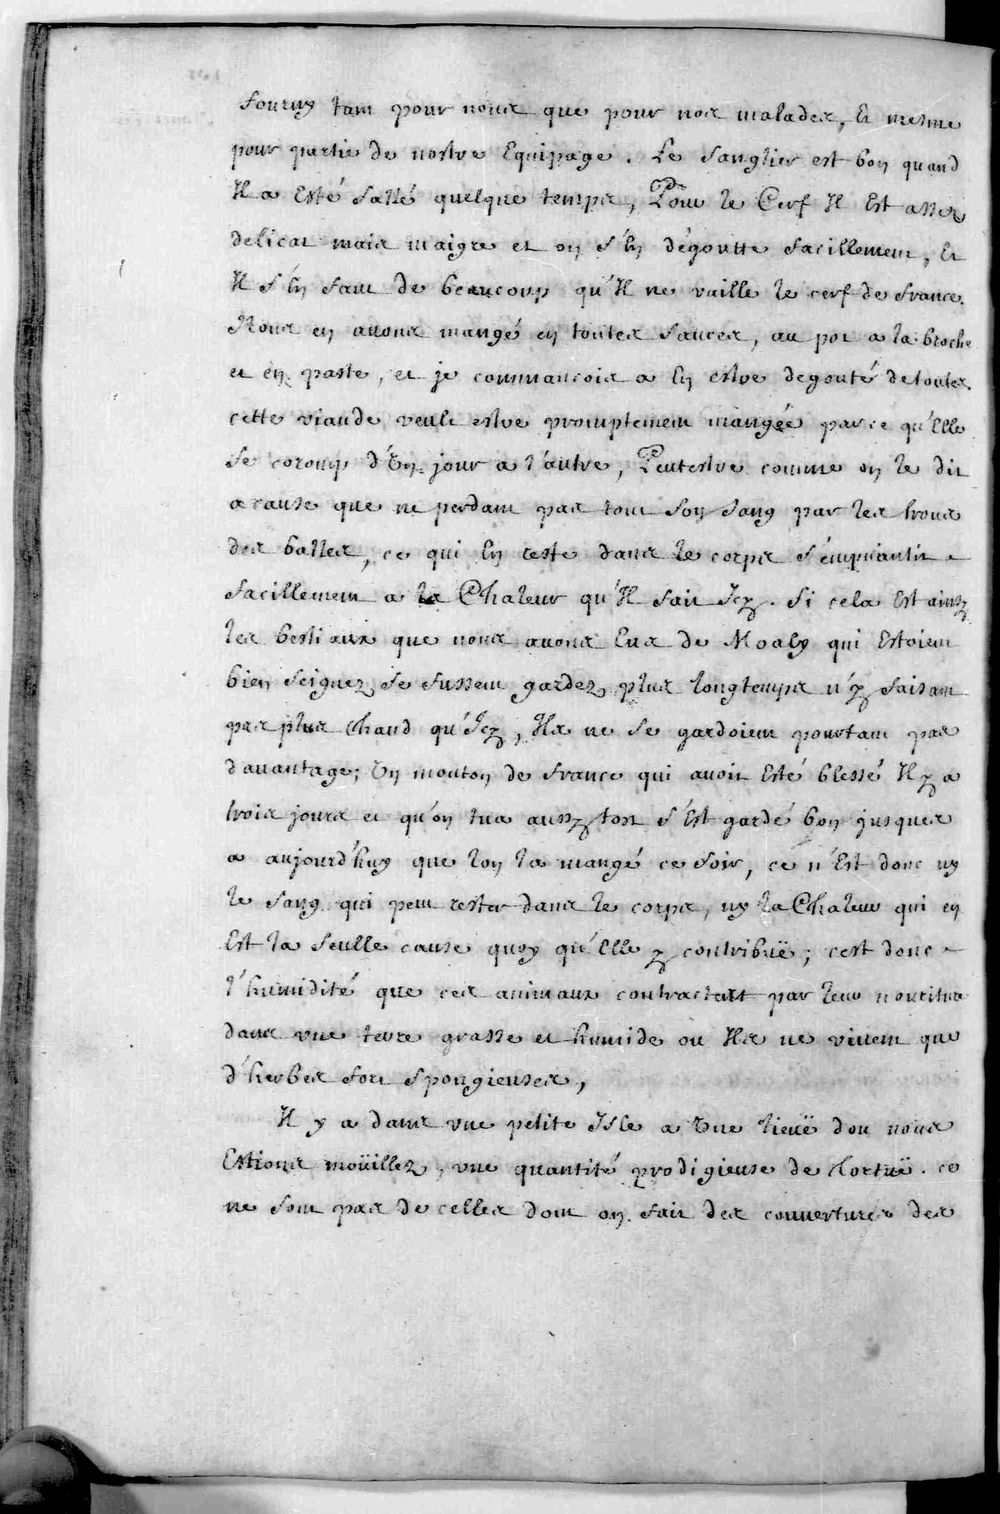 fourny tant pour nous que pour nos malades, Et mesme
pour partie de nostre Equipage. Le Sanglier est bon quand
Il a Esté sallé quelque temps, Pour le Cerf Il Est assez
delicat mais maigre et on s'En dégoutte facillement, Et
Il s'En faut de beaucoup qu'Il ne vaille le cerf de france.
Nous en auons mangé en toutes sauces, au pot a la broche
et en paste, et je commancois a En estre degouté de toutes.
cette viande veult estre promptement mangée parce qu'Elle
se coromp d'Un jour a l'autre, Peutestre comme on le dit
a cause que ne perdant pas tout son sang par les trous
des balles, ce qui En reste dans le corps s'empuantit
facillement a la Chaleur qu'Il fait Icy. Si cela Est ainsy
les bestiaux que nous auons Eus de Moaly qui Estoient
bien seignez se fussent gardez plus longtemps n'y faisant
pas plus chaud qu'Icy, Ils ne se gardoient pourtant pas
dauantage; Un mouton de france qui auoit Esté blessé Il y a
trois jours et qu'on tua aussy tost s'Est gardé bon jusques
a aujourd'huy que lon la mangé ce soir, ce n'Est donc ny
le sang qui peut rester dans le corps, ny la Chaleur qui en
Est la seulle cause quoy qu'Elle y contribuë; cest donc
l'humidité que ces animaux contractent par leur nouriture
dans vne terre grasse et humide ou Ils ne viuent que
d'herbes fort spongieuses,
Il y a dans vne petite Isle a Une lieuë dou nous
Estions moüillez, vne quantité prodigieuse de Tortuë. ce
ne sont pas de celles dont on fait des couvertures des